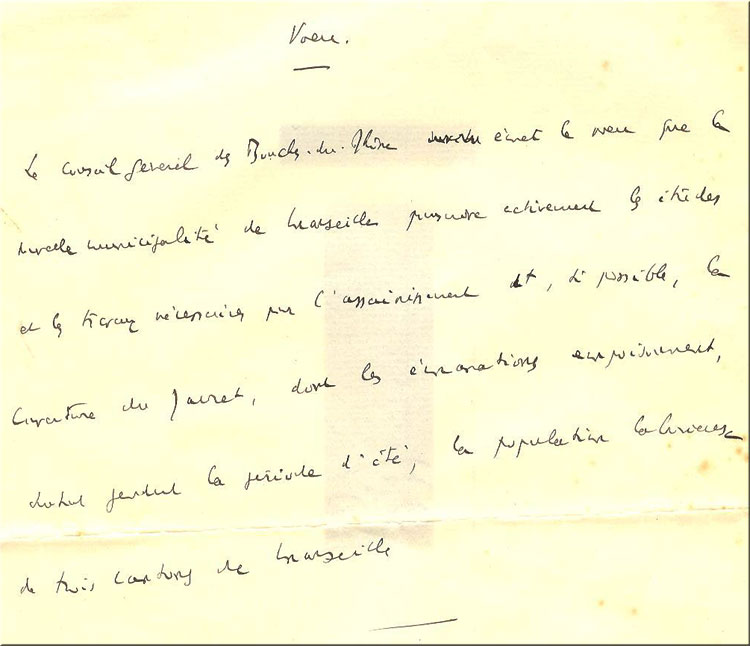 Voeu.
Le Conseil général des Bouches-du-Rhône émet le voeu que la
nouvelle municipalité de Marseille poursuive activement les études
et les travaux nécessaires pour l'assainissement et, si possible, la
couverture du Jarret, dont les émanations empoisonnent,
surtout pendant la période d'été, la population laborieuse
de trois cantons de Marseille